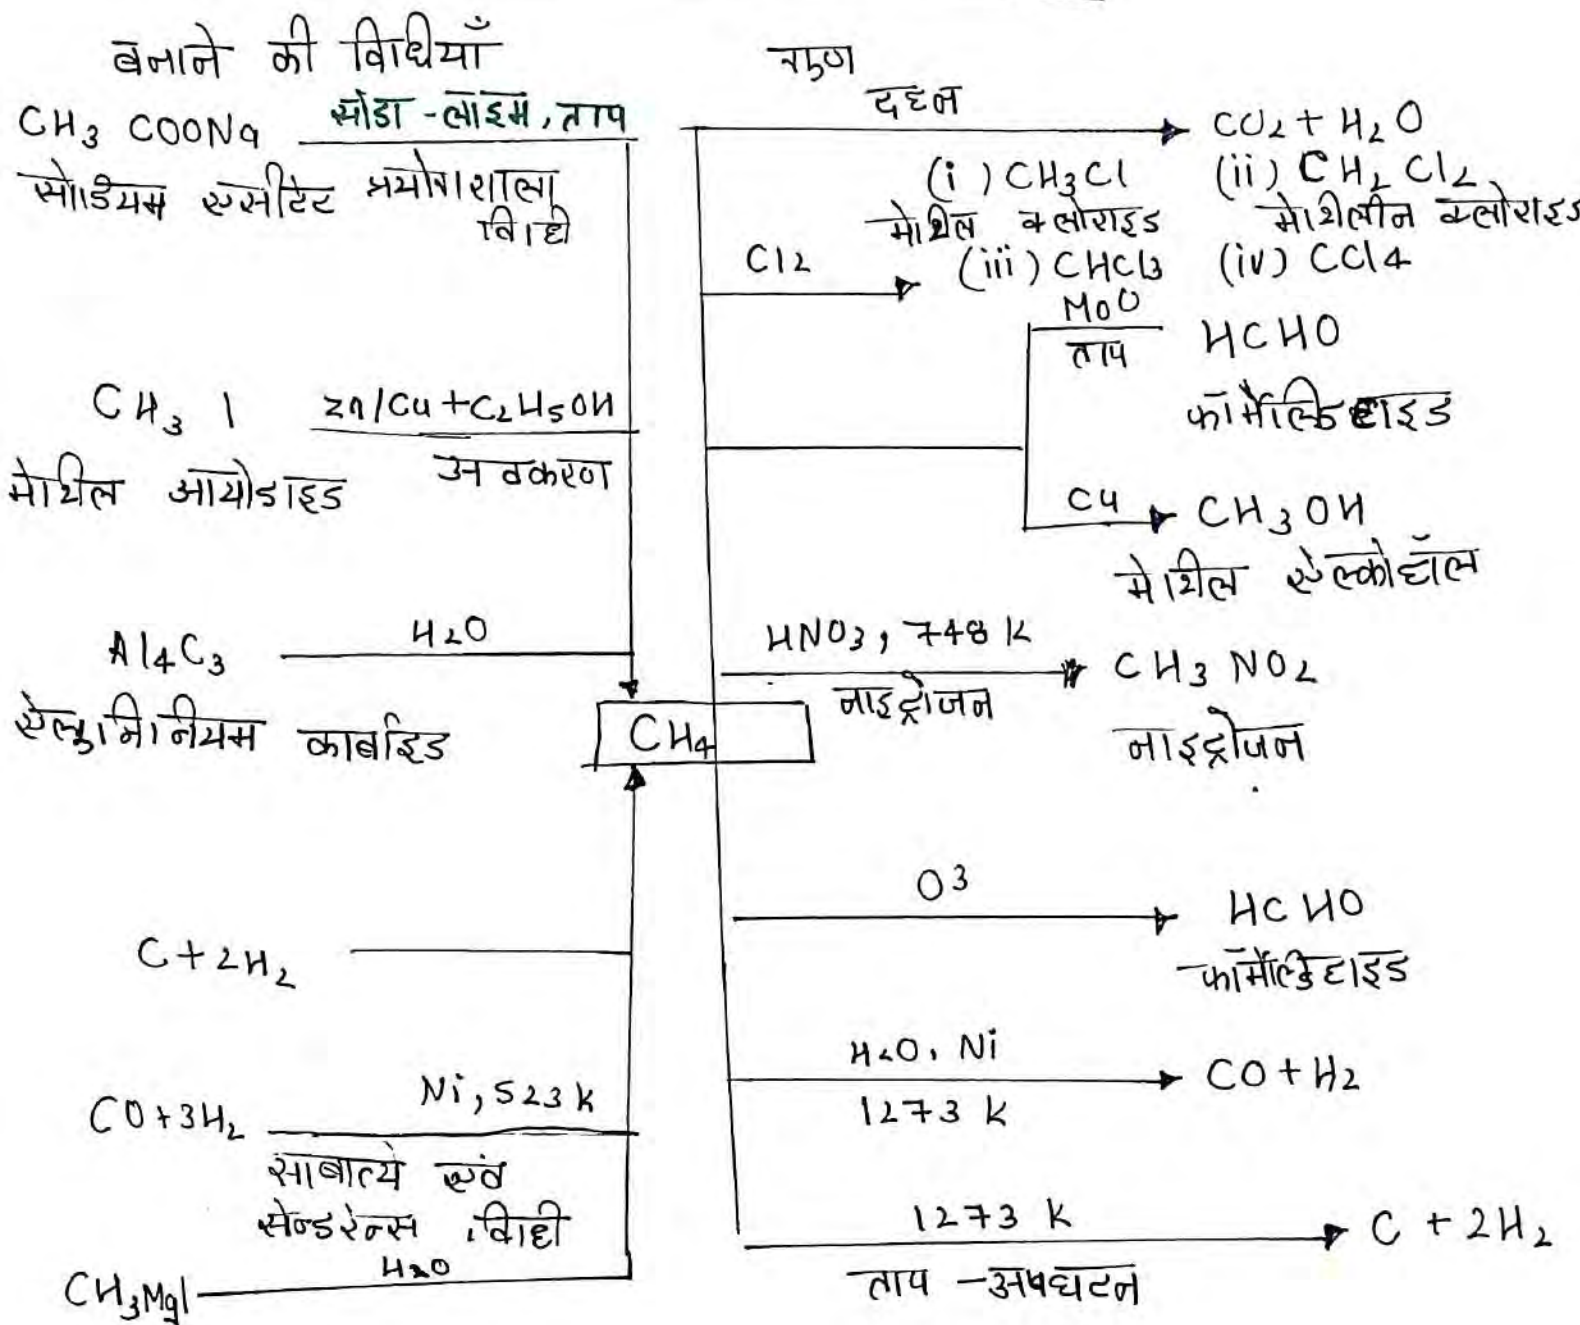 बनाने की विधियाँ
CH3 COONa सोडा-लाइम, ताप
सोडियम एसीटेट प्रयोगशाला
विधि
CH3 I Zn/Cu+C2H5OH
मेथिल आयोडाइड अवकरण
Al4C3 H2O
ऐलुमिनियम कार्बाइड
CH4
C+2H2
CO+3H2 Ni, 523 K
साबात्ये एवं
सेन्डरेन्स विधी
CH3MgI H2O
गुण
दहन CO2 + H2O
(i) CH3Cl (ii) CH2 Cl2
मेथिल क्लोराइड मेथिलीन क्लोराइड
Cl2 (iii) CHCl3 (iv) CCl4
MoO HCHO
ताप
फॉर्मेल्डिहाइड
Cu CH3OH
मेथिल ऐल्कोहॉल
HNO3, 748 K CH3 NO2
नाइट्रोजन नाइट्रोजन
O3 HCHO
फॉर्मेल्डिहाइड
H2O, Ni CO+H2
1273 K
1273 K C + 2H2
ताप -अपघटन